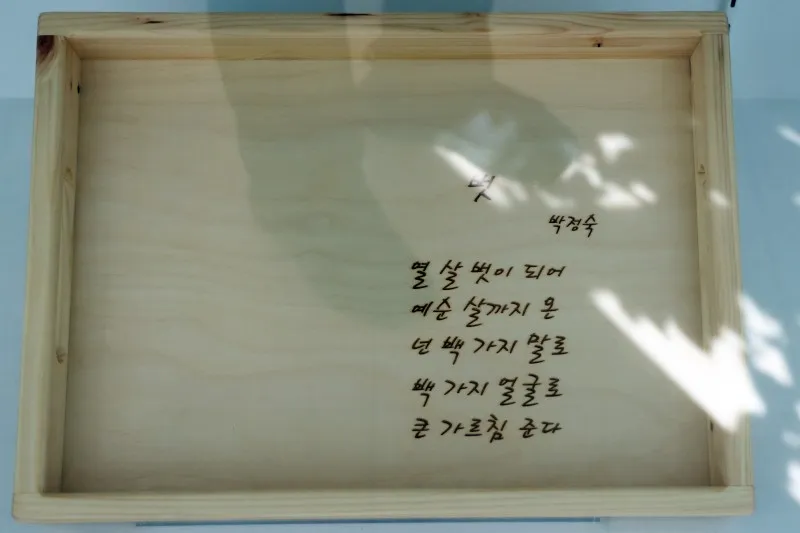 벗
박정숙
열 살 벗이 되어
예순 살까지 온
넌 백 가지 말로
백 가지 얼굴로
큰 가르침 준다